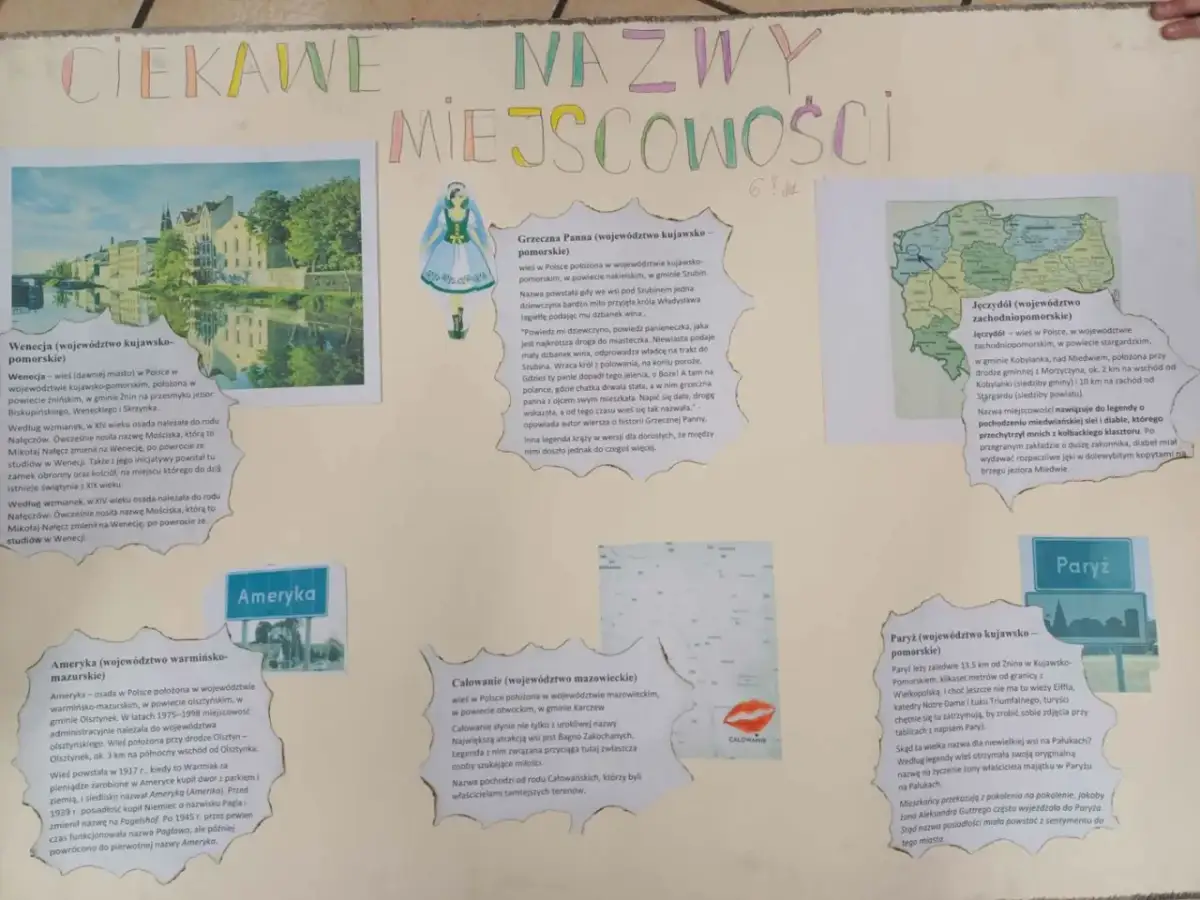 CIEKAWE NAZWY
MIEJSCOWOŚCI
Wenecja (województwo kujawsko-
pomorskie)
Wenecja – wieś (dawniej miasto) w Polsce w
województwie kujawsko-pomorskim, położona w
powiecie żnińskim, w gminie Żnin na przesmyku jezior
Biskupińskiego, Weneckiego i Skrzynka.
Według wzmianek, w XIV wieku osada należała do rodu
Nałęczów. Ówcześnie nosiła nazwę Mościska, którą to
Mikołaj Nałęcz zmienił na Wenecję, po powrocie ze
studiów w Wenecji. Także z jego inicjatywy powstał tu
zamek obronny oraz kościół, na miejscu którego do dziś
istnieje świątynia z XIX wieku.
Według wzmianek, w XIV wieku osada należała do rodu
Nałęczów. Ówcześnie nosiła nazwę Mościska, którą to
Mikołaj Nałęcz zmienił na Wenecję, po powrocie ze
studiów w Wenecji
Grzeczna Panna (województwo kujawsko –
pomorskie)
wieś w Polsce położona w województwie kujawsko-
pomorskim, w powiecie nakielskim, w gminie Szubin.
Nazwa powstała gdy we wsi pod Szubinem jedna
dziewczyna bardzo miło przyjęła króla Władysława
Jagiełłę podając mu dzbanek wina.
"Powiedz mi dziewczyno, powiedz panieneczka, jaka
jest najkrótsza droga do miasteczka. Niewiasta podaje
mały dzbanek wina, odprowadza władcę na trakt do
Szubina. Wraca król z polowania, na koniu poroże,
Gdzieś ty panie dopadł tego jelenia, o Boże! A tam na
polance, gdzie chatka drwala stała, a w nim grzeczna
panna z ojcem swym mieszkała. Napić się dała, drogę
wskazała, a od tego czasu wieś się tak nazwała." -
opowiada autor wiersza o historii Grzecznej Panny.
Inna legenda krąży w wersji dla dorosłych, że między
nimi doszło jednak do czegoś więcej.
Jęczydół (województwo
zachodniopomorskie)
Jęczydół – wieś w Polsce, w województwie
zachodniopomorskim, w powiecie stargardzkim,
w gminie Kobylanka, nad Miedwiem, położona przy
drodze gminnej z Morzyczyna, ok. 2 km na wschód od
Kobylanki (siedziby gminy) i 10 km na zachód od
Stargardu (siedziby powiatu).
Nazwa miejscowości nawiązuje do legendy o
pochodzeniu miedwiańskiej siei i diable, którego
przechytrzył mnich z kołbackiego klasztoru. Po
przegranym zakładzie o duszę zakonnika, diabeł miał
wydawać rozpaczliwe jęki w dole wybitym kopytami na
brzegu jeziora Miedwie.
Ameryka
Ameryka (województwo warmińsko-
mazurskie)
Ameryka – osada w Polsce położona w województwie
warmińsko-mazurskim, w powiecie olsztyńskim, w
gminie Olsztynek. W latach 1975–1998 miejscowość
administracyjnie należała do województwa
olsztyńskiego. Wieś położona przy drodze Olsztyn –
Olsztynek, ok. 3 km na północny wschód od Olsztynka.
Wieś powstała w 1917 r., kiedy to Warmiak za
pieniądze zarobione w Ameryce kupił dwór z parkiem i
ziemią, i siedlisko nazwał Ameryką (Ameriko). Przed
1939 r. posiadłość kupił Niemiec o nazwisku Pagla i
zmienił nazwę na Pagelshof. Po 1945 r. przez pewien
czas funkcjonowała nazwa Pagłowo, ale później
powrócono do pierwotnej nazwy Ameryka.
Całowanie (województwo mazowieckie)
wieś w Polsce położona w województwie mazowieckim,
w powiecie otwockim, w gminie Karczew
Całowanie słynie nie tylko z urokliwej nazwy
Największą atrakcją wsi jest Bagno Zakochanych.
Legenda z nim związana przyciąga tutaj zwłaszcza
osoby szukające miłości.
Nazwa pochodzi od rodu Całowańskich, którzy byli
właścicielami tamtejszych terenów.
CAŁOWANIE
Paryż
Paryż (województwo kujawsko –
pomorskie)
Paryż leży zaledwie 13,5 km od Żnina w Kujawsko-
Pomorskiem, kilkaset metrów od granicy z
Wielkopolską. I choć jeszcze nie ma tu wieży Eiffla,
katedry Notre Dame i Łuku Triumfalnego, turyści
chętnie się tu zatrzymują, by zrobić sobie zdjęcia przy
tablicach z napisem Paryż.
Skąd ta wielka nazwa dla niewielkiej wsi na Pałukach?
Według legendy wieś otrzymała swoją oryginalną
nazwę na życzenie żony właściciela majątku w Paryżu
na Pałukach.
Mieszkańcy przekazują z pokolenia na pokolenie, jakoby
żona Aleksandra Guttrego często wyjeżdżała do Paryża.
Stąd nazwa posiadłości miała powstać z sentymentu do
tego miasta.